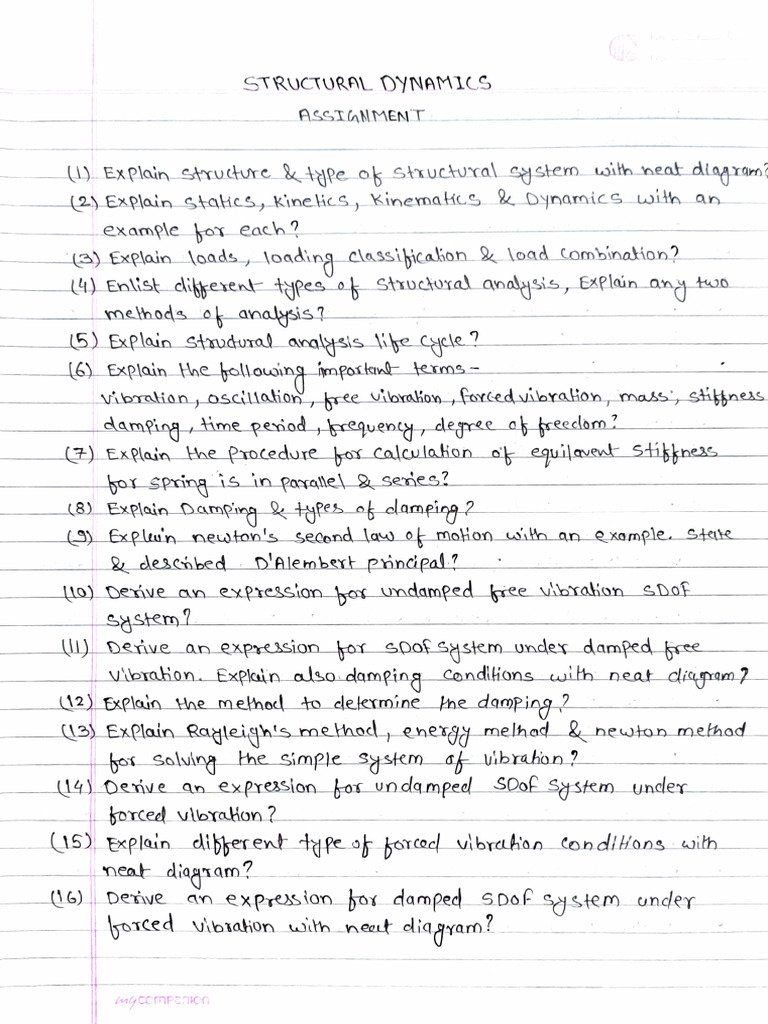 STRUCTURAL DYNAMICS
ASSIGNMENT
(1) Explain structure & type of structural system with neat diagram?
(2) Explain statics, kinetics, kinematics & Dynamics with an
example for each?
(3) Explain loads, loading classification & load combination?
(4) Enlist different types of structural analysis, Explain any two
methods of analysis?
(5) Explain structural analysis life cycle?
(6) Explain the following important terms-
vibration, oscillation, free vibration, forced vibration, mass, stiffness
damping, time period, frequency, degree of freedom?
(7) Explain the procedure for calculation of equilavent stiffness
for spring is in parallel & series?
(8) Explain Damping & types of damping?
(9) Explain newton's second law of motion with an example. State
& described D'Alembert principal?
(10) Derive an expression for undamped free vibration SDof
system?
(11) Derive an expression for SDof system under damped free
vibration. Explain also damping conditions with neat diagram?
(12) Explain the method to determine the damping?
(13) Explain Rayleigh's method, energy method & newton method
for solving the simple system of vibration?
(14) Derive an expression for undamped SDof system under
forced vibration?
(15) Explain different type of forced vibration conditions with
neat diagram?
(16) Derive an expression for damped SDof system under
forced vibration with neat diagram?
mycompanion